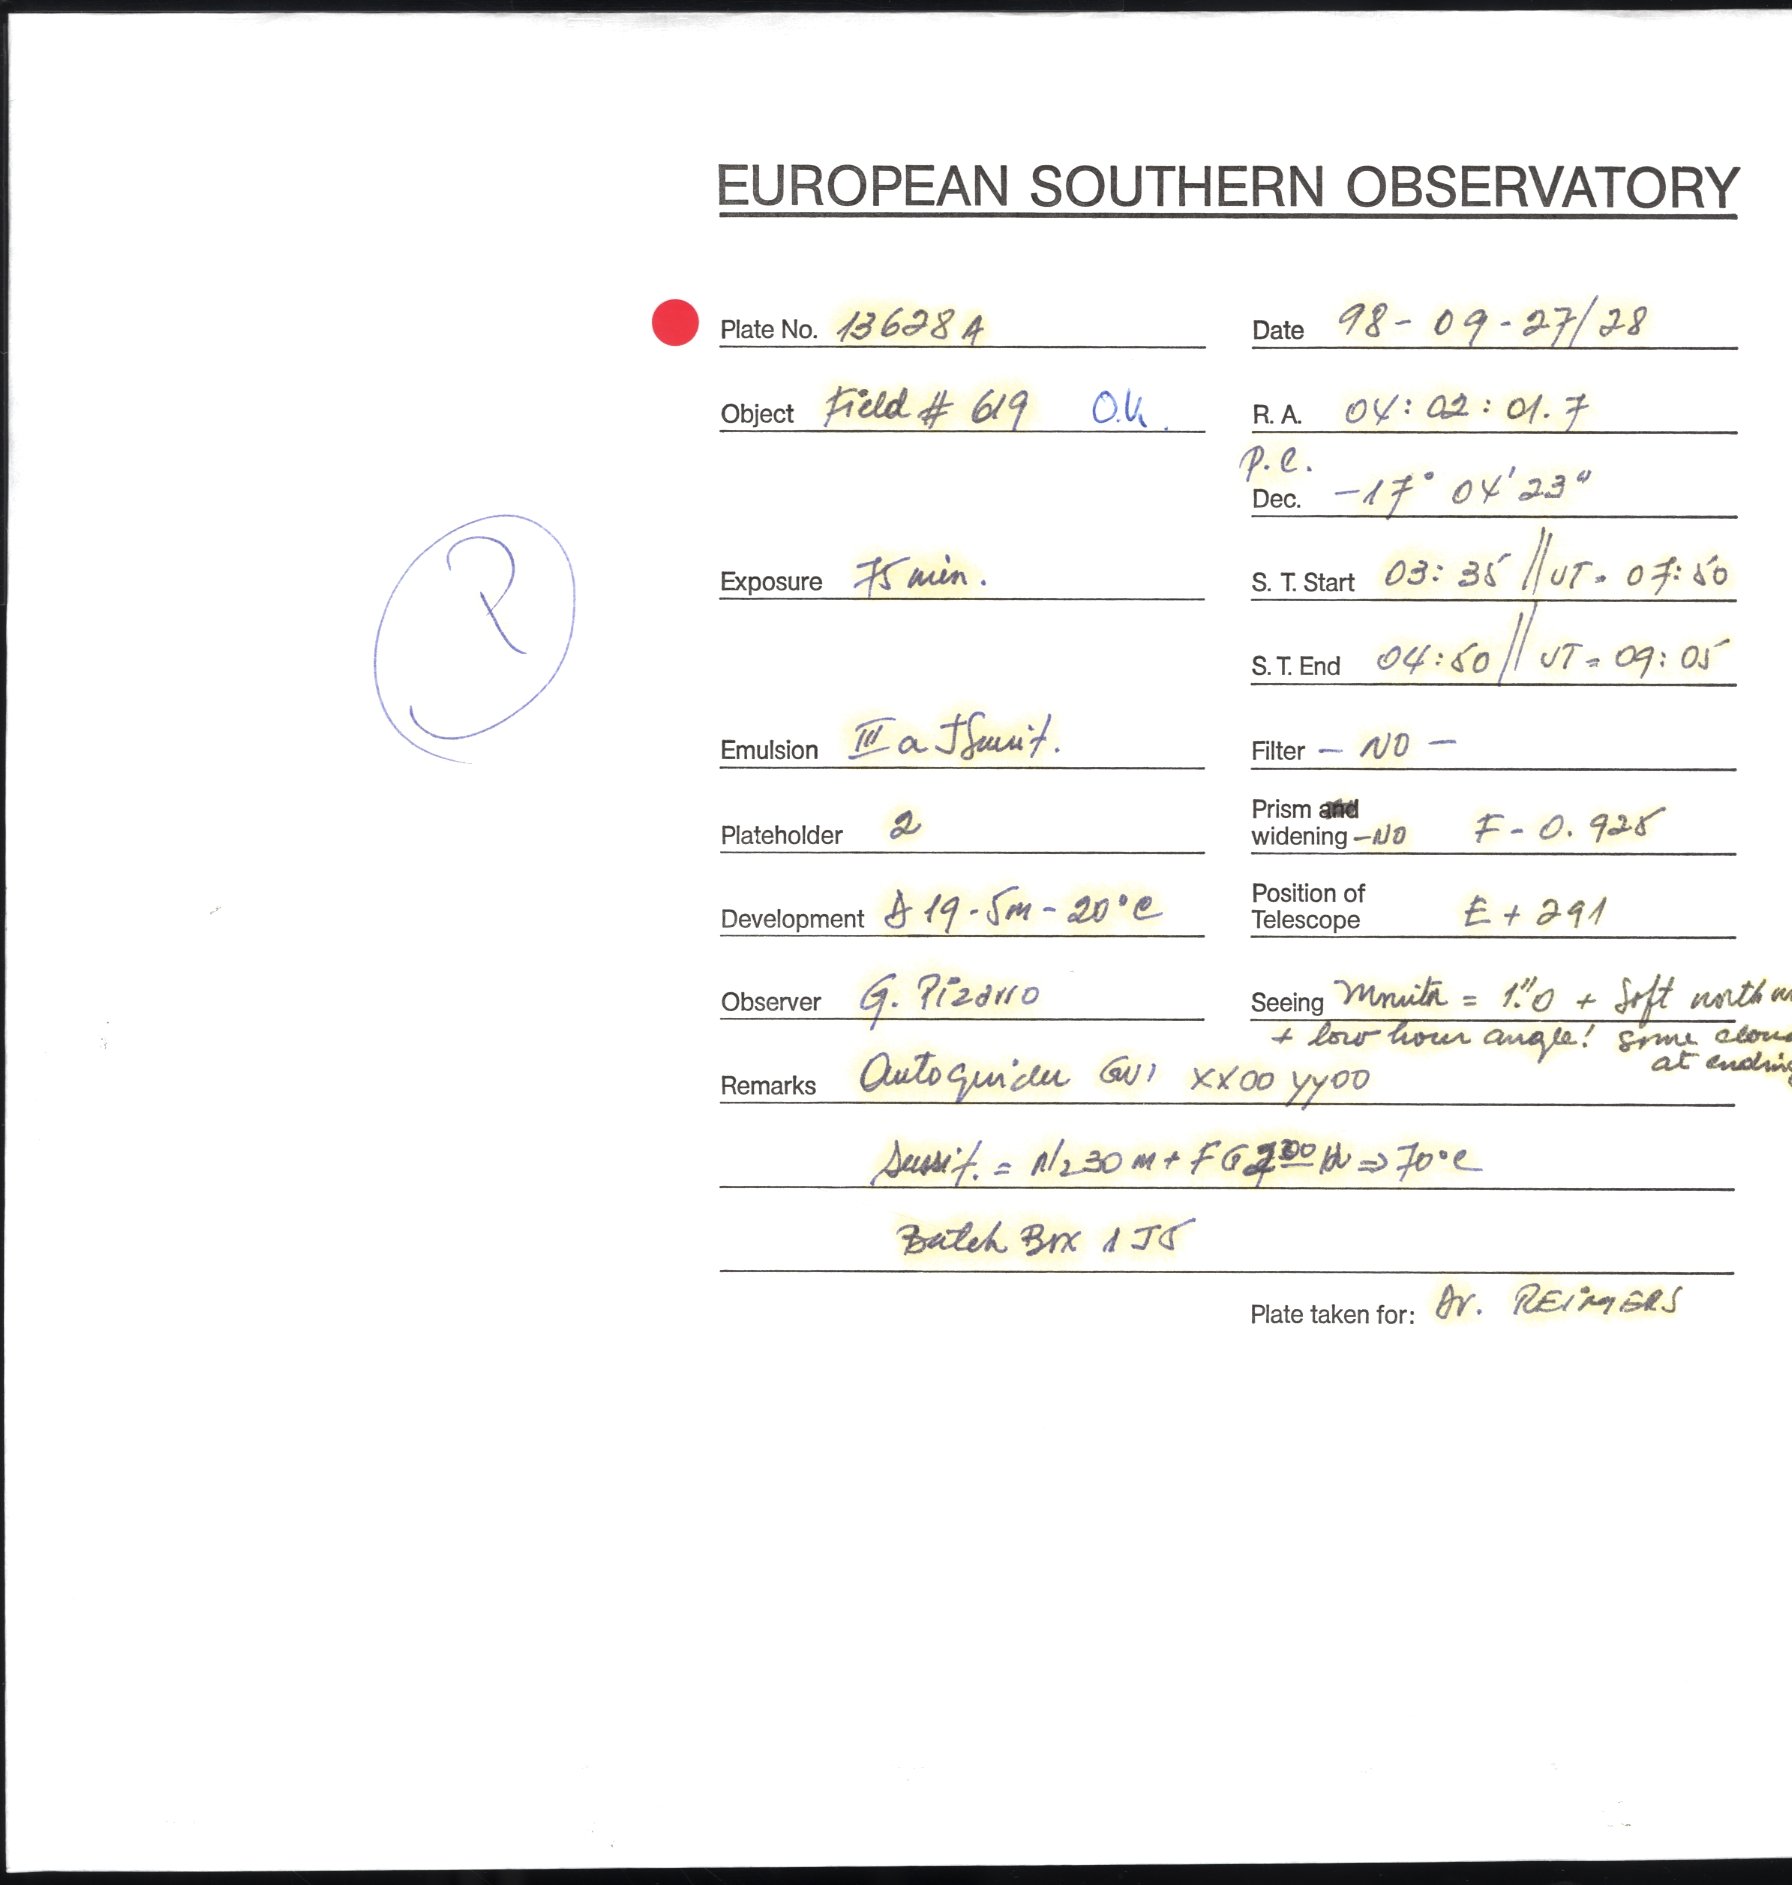 EUROPEAN SOUTHERN OBSERVATORY
Plate No. 13628 A
Date 98 - 09 - 27/28
Object Field # 619 O.K.
R. A. 04 : 02 : 01. 7
P. C.
Dec. -17° 04' 23"
Exposure 75 min.
S. T. Start 03: 35 // UT = 07: 50
S. T. End 04:50 // UT = 09: 05
R
Emulsion III a J
Filter - NO -
Plateholder 2
Prism and
widening - NO F - 0. 925
Development D 19 - 5m - 20°C
Position of
Telescope E + 291
Observer G. Pizarro
Seeing Monitor = 1."0 + Soft north
+ low hour angle! some
at ending
Remarks Autoguider XX00 YY00
= N2 30 m + F G ⇒ 70°C
Batch Box 1 J5
Plate taken for: Dr. REIMERS